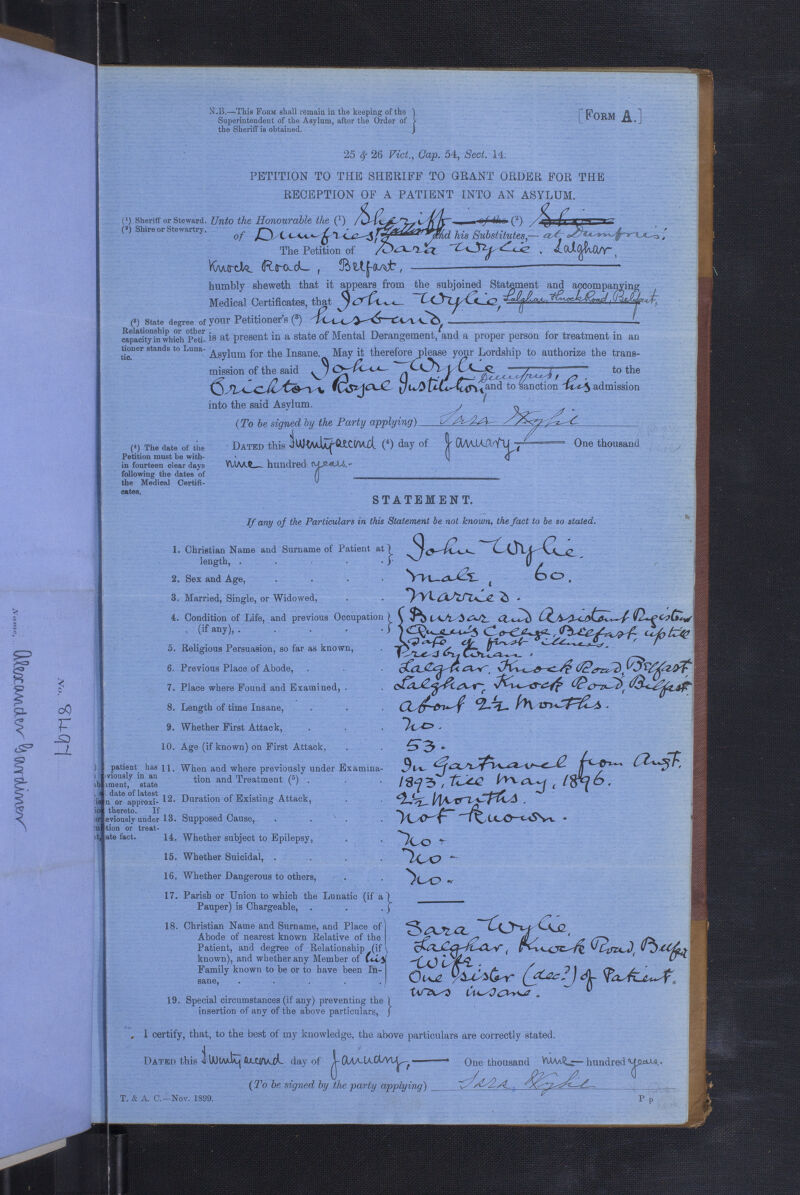 N.B.—This Form shall remain in the keeping of the
Superintendent of the Asylum, after the Order of
the Sheriff is obtained.
[Form A.]
25 & 26 Vict., Cap. 54, Sect. 14.
PETITION TO THE SHERIFF TO GRANT ORDER FOR THE
RECEPTION OF A PATIENT INTO AN ASYLUM.
(1) Sheriff or Steward.
(2) Shire or Stewartry.
Unto the Honourable the (1) Sheriff of the (2) Shire
of Dumfries & Galloway and his Substitutes,— at Dumfries.
The Petition of Sara Wylie. Lalghar,
Knock Road, Belfast,
humbly sheweth that it appears from the subjoined Statement and accompanying
Medical Certificates, that John Wylie, Lalghar, Knock Road, Belfast,
(3) State degree of
Relationship or other
capacity in which Peti-
tioner stands to Luna-
tic.
your Petitioner's (3) husband,
is at present in a state of Mental Derangement, and a proper person for treatment in an
Asylum for the Insane. May it therefore please your Lordship to authorize the trans-
mission of the said John Wylie to the
Crichton Royal Institution, Dumfries, and to sanction his admission
into the said Asylum.
(To be signed by the Party applying) Sara Wylie
(4) The date of the
Petition must be with-
in fourteen clear days
following the dates of
the Medical Certifi-
cates.
Dated this Twenty second (4) day of January, One thousand
nine hundred years.
STATEMENT.
If any of the Particulars in this Statement be not known, the fact to be so stated.
1. Christian Name and Surname of Patient at
length, . John Wylie.
2. Sex and Age, Male, 60.
3. Married, Single, or Widowed, Married.
4. Condition of Life, and previous Occupation
(if any), Bursar and Assistant Registrar
Queen's College, Belfast, up till
date of first illness.
5. Religious Persuasion, so far as known, Presbyterian.
6. Previous Place of Abode, Lalghar, Knock Road, Belfast
7. Place where Found and Examined, Lalghar, Knock Road, Belfast.
8. Length of time Insane, about 2½ Months.
9. Whether First Attack, No.
10. Age (if known) on First Attack, 53.
11. When and where previously under Examina-
tion and Treatment (5) In Gartnavel from Augt.
1893, till May, 1896.
12. Duration of Existing Attack, 2½ Months.
13. Supposed Cause, Not Known.
14. Whether subject to Epilepsy, No.
15. Whether Suicidal, No.
16. Whether Dangerous to others, No.
17. Parish or Union to which the Lunatic (if a
Pauper) is Chargeable,
18. Christian Name and Surname, and Place of
Abode of nearest known Relative of the
Patient, and degree of Relationship (if
known), and whether any Member of his
Family known to be or to have been In-
sane,
Sara Wylie,
Lalghar, Knock Road, Belfast
Wife.
One sister (decd) of Patient.
was insane.
19. Special circumstances (if any) preventing the
insertion of any of the above particulars,
patient has
viously in an
state
date of latest
n or approxi-
thereto. If
eviously under
tion or treat-
ate fact.
I certify, that, to the best of my knowledge, the above particulars are correctly stated.
Dated this Twenty second day of January, One thousand nine hundred years.
(To be signed by the party applying) Sara Wylie
T. & A. C.—Nov. 1899.
P p
No. 8497
Name, Alexander Gardiner